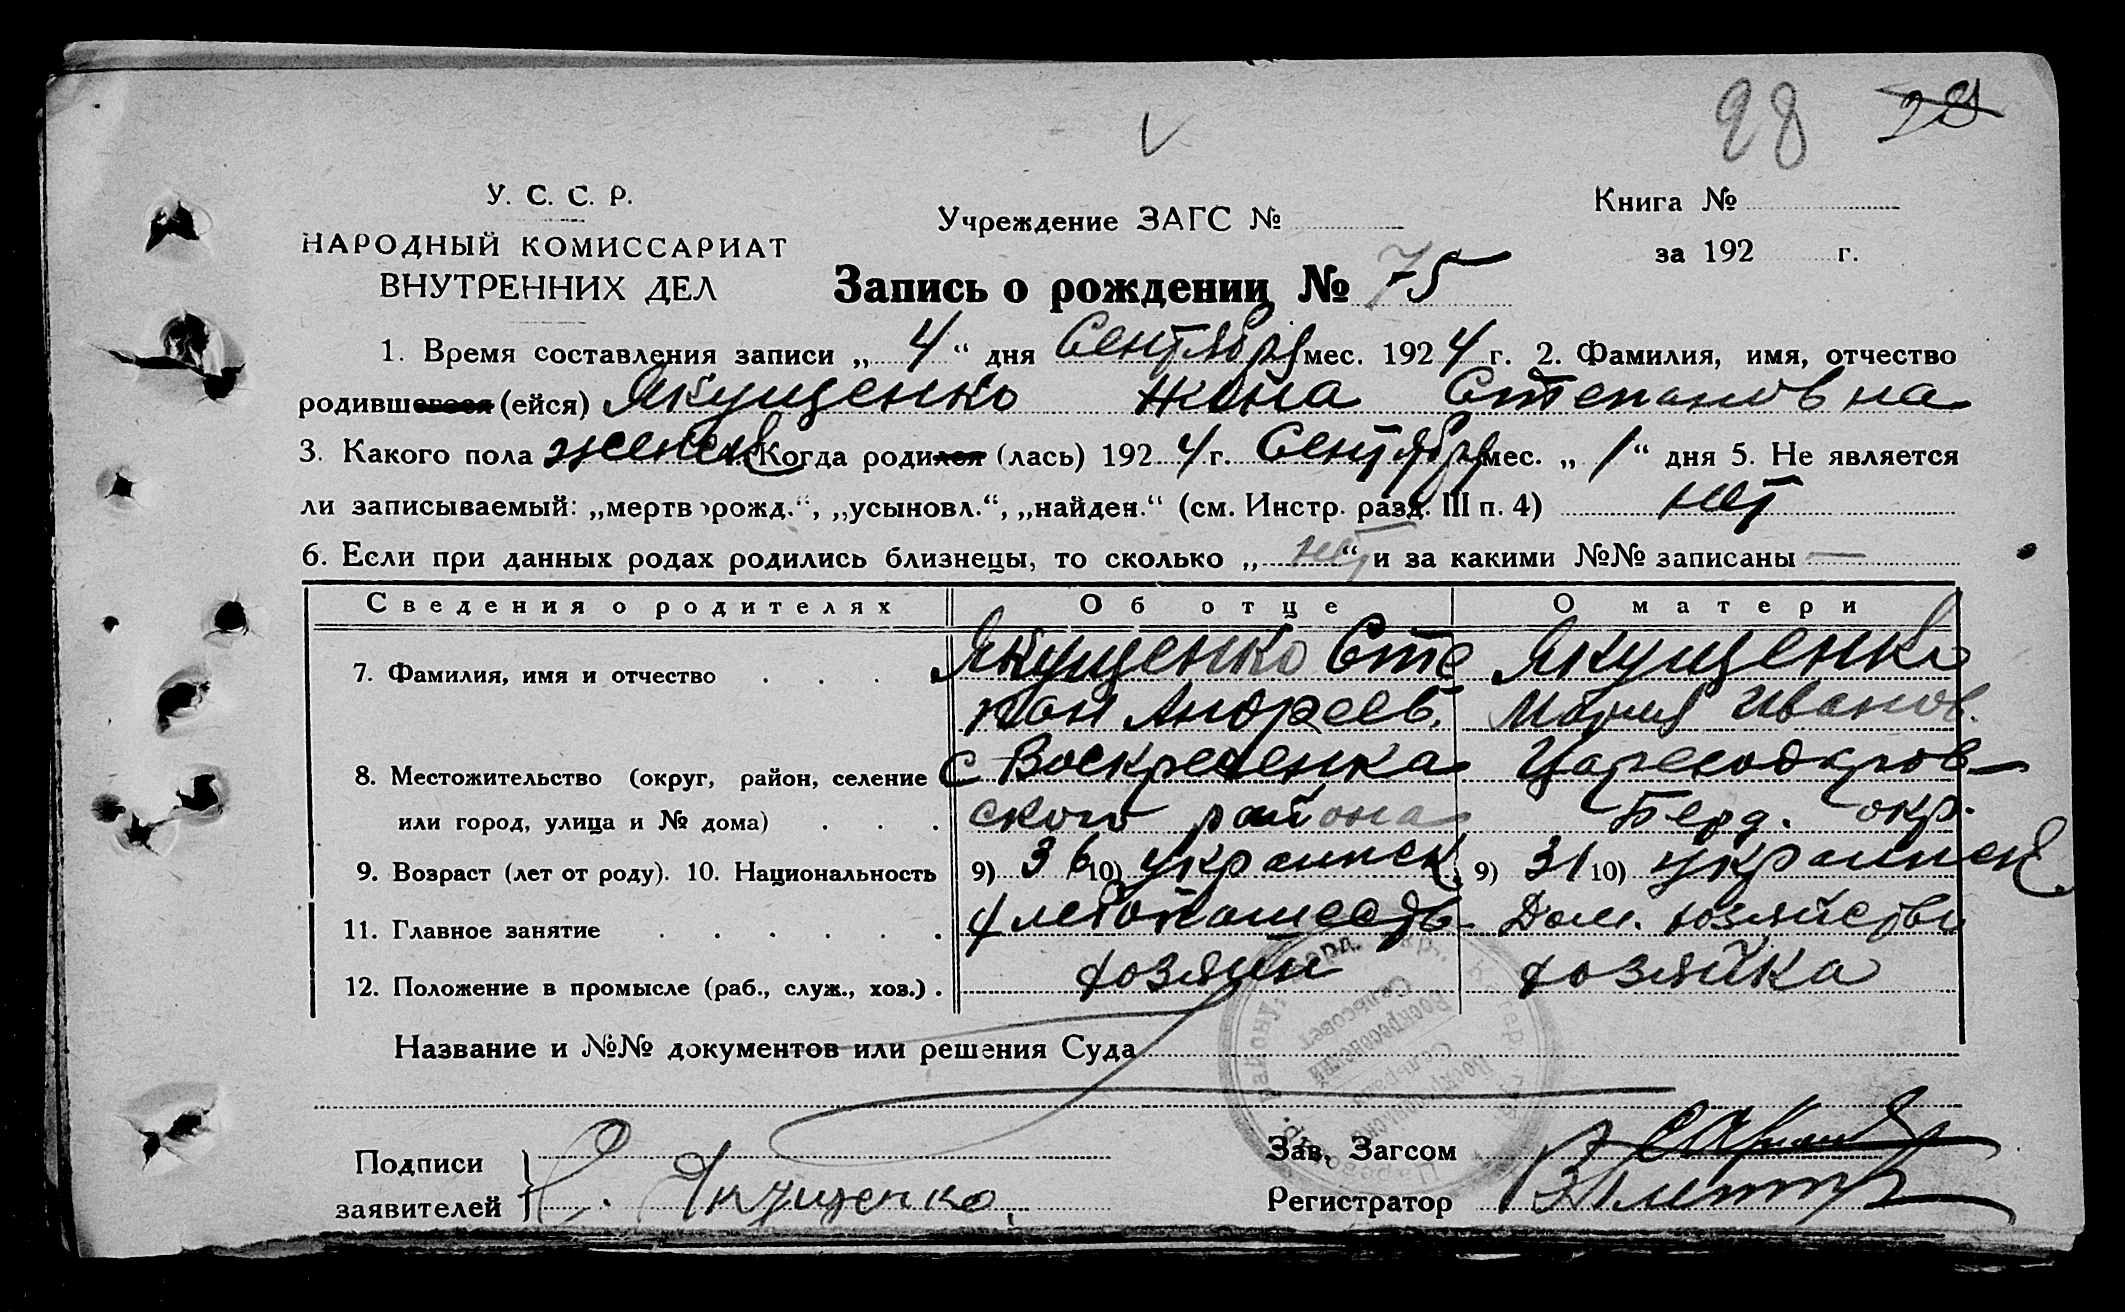 28 28
У. С. С. Р.
Учреждение ЗАГС №
Книга №
НАРОДНЫЙ КОМИССАРИАТ
ВНУТРЕННИХ ДЕЛ
за 192 г.
Запись о рождении № 75
1. Время составления записи „ 4 “ дня Сентября мес. 192 4 г. 2. Фамилия, имя, отчество
родившегося (ейся) Якущенко Жена Степановна
3. Какого пола женск Когда родился (лась) 192 4 г. Сентября мес. „ 1 “ дня 5. Не является
ли записываемый: „мертворожд.“, „усыновл.“, „найден.“ (см. Инстр. разд. III п. 4) нет
6. Если при данных родах родились близнецы, то сколько „ нет “ и за какими №№ записаны —
Сведения о родителях Об отце О матери
7. Фамилия, имя и отчество . . . Якущенко Сте Якущенко
пан Андреев. Мария Иванов.
8. Местожительство (округ, район, селение с Воскресенка Цареводаров-
или город, улица и № дома) . . . ского района Берд. окр.
9. Возраст (лет от роду). 10. Национальность 9) 36 10) украинск. 9) 31 10) украинск.
11. Главное занятие . . . . . . хлебопашество Дом. хозяйство
12. Положение в промысле (раб., служ., хоз.) . хозяин хозяйка
Название и №№ документов или решения Суда
Воскресенский
Сельсовет
Подписи
заявителей
С. Якущенко
Зав. Загсом
Регистратор